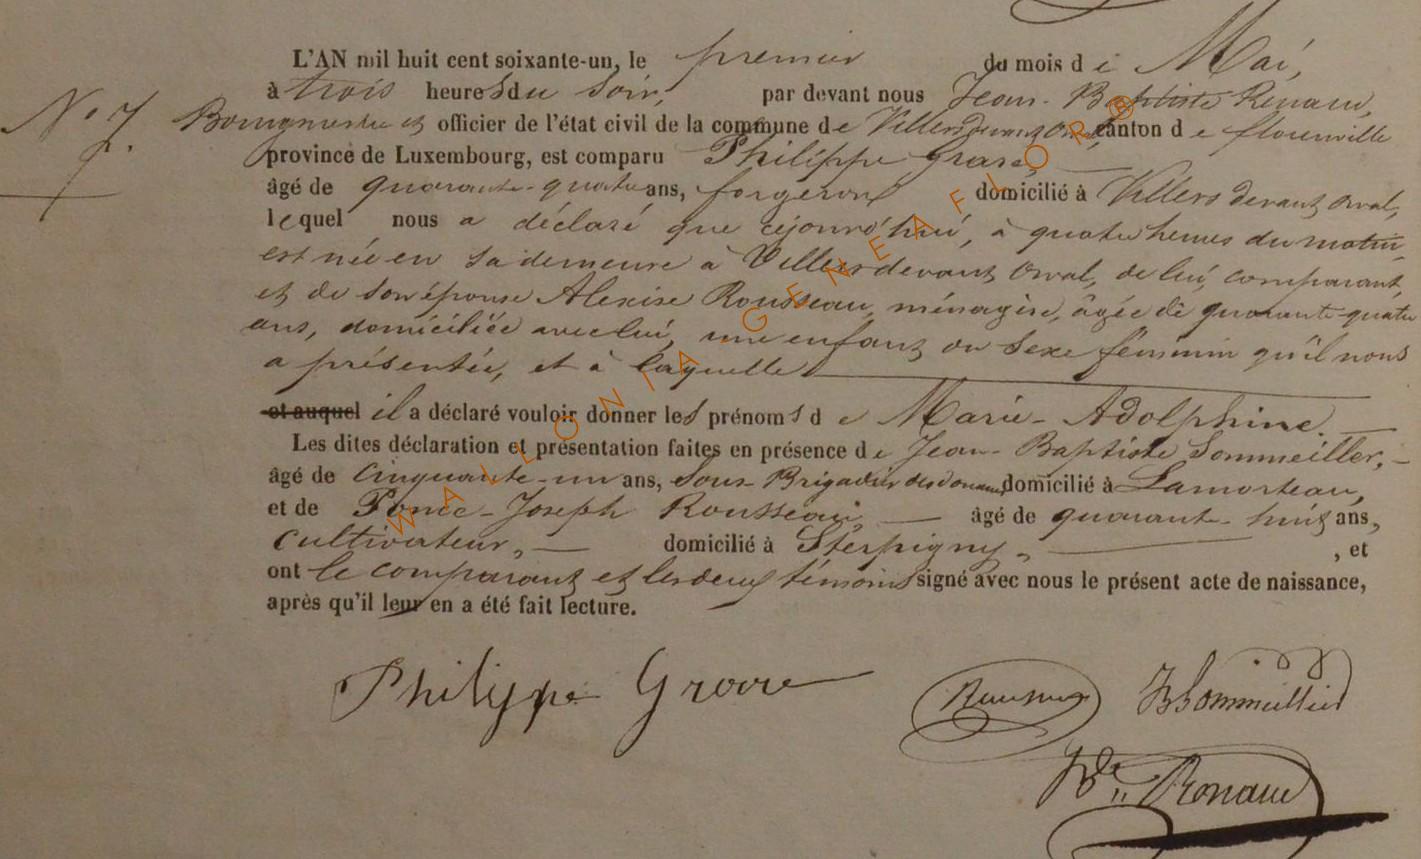 L'AN mil huit cent soixante-un, le premier du mois de Mai,
à trois heures du Soir, par devant nous Jean-Baptiste Renaud,
N° 7. Bourgmestre et officier de l'état civil de la commune de Villers devant Orval, canton de florenville
province de Luxembourg, est comparu Philippe
âgé de quarante-quatre ans, forgeron domicilié à Villers devant Orval,
lequel nous a déclaré que cejourd'hui, à quatre heures du matin,
est née en sa demeure à Villers devant Orval, de lui, comparant,
et de son épouse Rousseau, ménagère, âgée de quarante-quatre
ans, domiciliée avec lui, une enfant du Sexe féminin qu'il nous
a présentée, et à laquelle
et auquel il a déclaré vouloir donner les prénoms de Marie-Adolphine.
Les dites déclaration et présentation faites en présence de Jean-Baptiste Sommeiller,
âgé de cinquante-un ans, Sous-Brigadier des douanes, domicilié à Lamorteau,
et de Ponce-Joseph Rousseau, âgé de quarante-huit ans,
cultivateur, domicilié à Sterpigny, , et
ont le comparant et les deux témoins signé avec nous le présent acte de naissance,
après qu'il leur en a été fait lecture.
Philippe
WALLONIA-GENEAFLORB